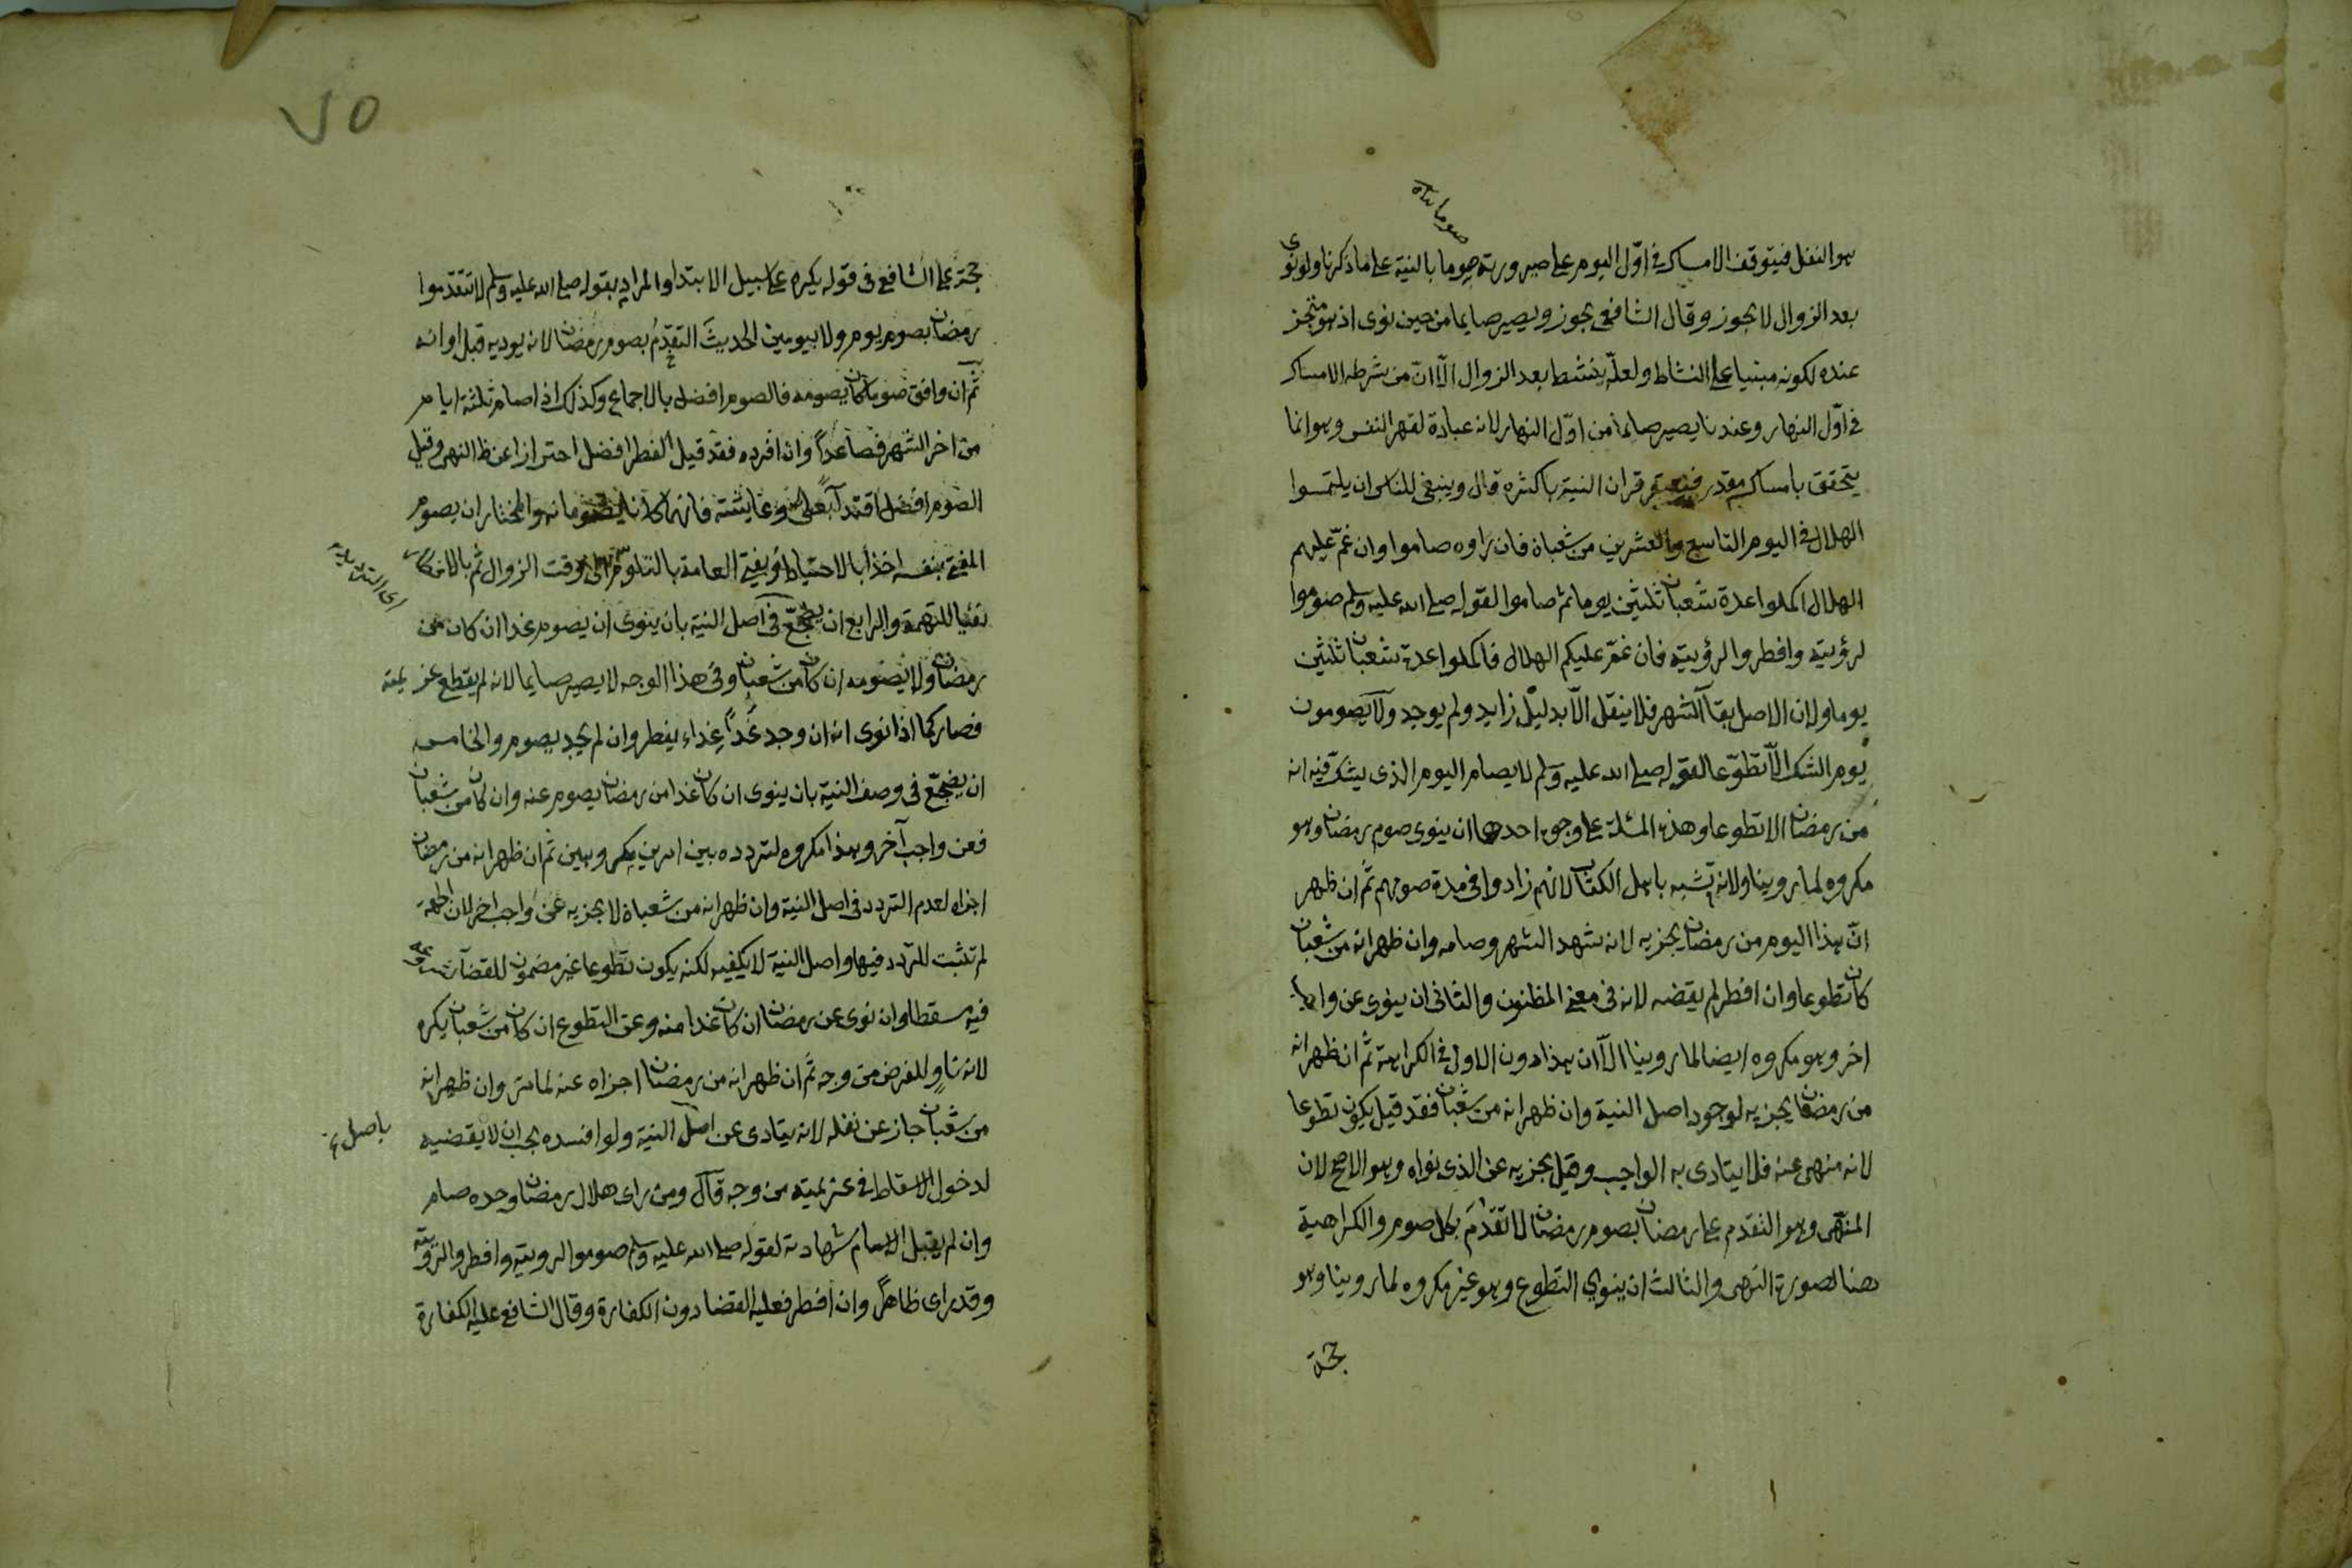 صوما بناء
هو النفل فيتوقف الامساك في اوّل اليوم على صيرورته صوما بالنية على ما ذكرنا ولو نوى
بعد الزوال لا يجوز وقال الشافعي يجوز ويصير صايما من حين نوى اذ هو متجز
عنده لكونه مبنيا على النشاط ولعلّه ينشط بعد الزوال الّا انّ من شرطه الامساك
في اوّل النهار وعندنا يصير صايما من اوّل النهار لانه عبادة لقهر النفس وهو انما
يتحقق بامساك مقدر فيعتبر قران النية باكثره قال وينبغي للناس ان يلتمسوا
الهلال في اليوم التاسع والعشرين من شعبان فان راوه صاموا وان غمّ عليهم
الهلال اكملوا عدة شعبان ثلثين يوما ثم صاموا لقوله صلى الله عليه وسلم صوموا
لرؤيته وافطروا لرؤيته فان غمّ عليكم الهلال فاكملوا عدة شعبان ثلثين
يوما ولان الاصل بقآ الشهر فلا ينقل الّا بدليل زايد ولم يوجد ولا يصومون
يوم الشك الّا تطوّعا لقوله صلى الله عليه وسلم لا يصام اليوم الذى يشك فيه انه
من رمضان الا تطوعا وهذه المسئلة على وجوه احدها ان ينوى صوم رمضان وهو
مكروه لما روينا ولانه تشبه باهل الكتاب لانهم زادوا فى مدة صومهم ثم ان ظهر
انّ هذا اليوم من رمضان يجزيه لانه شهد الشهر وصامه وان ظهر انه من شعبان
كان تطوعا وان افطر لم يقضه لانه فى معنى المظنون والثانى ان ينوى عن واجب
اخر وهو مكروه ايضا لما روينا الّا ان هذا دون الاول في الكراهة ثم ان ظهر انه
من رمضان يجزيه لوجود اصل النية وان ظهر انه من شعبان فقد قيل يكون تطوعا
لانه منهى عنه فلا يتادى به الواجب وقيل يجزيه عن الذى نواه وهو الاصح لان
المنهى وهو التقدم على رمضان بصوم رمضان لا تقدّم بكل صوم والكراهية
هنا لصورة النهى والثالث ان ينوي التطوع وهو غير مكروه لما روينا وهو
حجة
٧٥
حجة على الشافعى فى قوله يكره على سبيل الابتدا والمراد بقوله صلى الله عليه وسلم لا تتقدموا
رمضان بصوم يوم ولا بيومين الحديث التقدّم بصوم رمضان لانه يوديه قبل اوانه
ثم ان وافق صوما كان يصومه فالصوم افضل بالاجماع وكذلك اذا صام ثلثة ايام
من اخر الشهر فصاعداً وان افرده فقد قيل الفطر افضل احترازا عن ظ النهى وقيل
الصوم افضل اقتدآ بعلى وعايشة فانهما كانا يصومانه والمختار ان يصوم
المفتى بنفسه اخذا بالاحتياط ويفتى العامة بالتلوّم الى وقت الزوال ثم بالافطار
نفيا للتهمة والرابع ان يضجّع فى اصل النية بان ينوى ان يصوم غدا ان كان من
رمضان ولا يصومه ان كان من شعبان وفى هذا الوجه لا يصير صايما لانه لم يقطع عزيمته
فصار كما اذا نوى انه ان وجد غداً غداء يفطر وان لم يجد يصوم والخامس
ان يضجّع فى وصف النية بان ينوى ان كان غدا من رمضان يصوم عنه وان كان من شعبان
فعن واجب آخر وهذا مكروه لتردده بين امرين مكروهين ثم ان ظهر انه من رمضان
اجزاه لعدم التردد فى اصل النية وان ظهر انه من شعبان لا يجزيه عن واجب اخر لان الجهة
لم تثبت للتردد فيها واصل النية لا يكفيه لكنه يكون تطوعا غير مضمون للقضآ لشروعه
فيه مسقطا وان نوى عن رمضان ان كان غدا منه وعن التطوع ان كان من شعبان يكره
لانه ناوٍ للفرض من وجه ثم ان ظهر انه من رمضان اجزاه عنه لما مر وان ظهر انه
من شعبان جاز عن نفله لانه يتادى عن اصل النية ولو افسده يجب ان لا يقضيه
باصل
لدخول الاسقاط فى عزيمته من وجه قال ومن راى هلال رمضان وحده صام
وان لم يقبل الامام شهادته لقوله صلى الله عليه وسلم صوموا لرويته وافطروا لرويته
وقد راى ظاهراً وان افطر فعليه القضا دون الكفارة وقال الشافعى عليه الكفارة